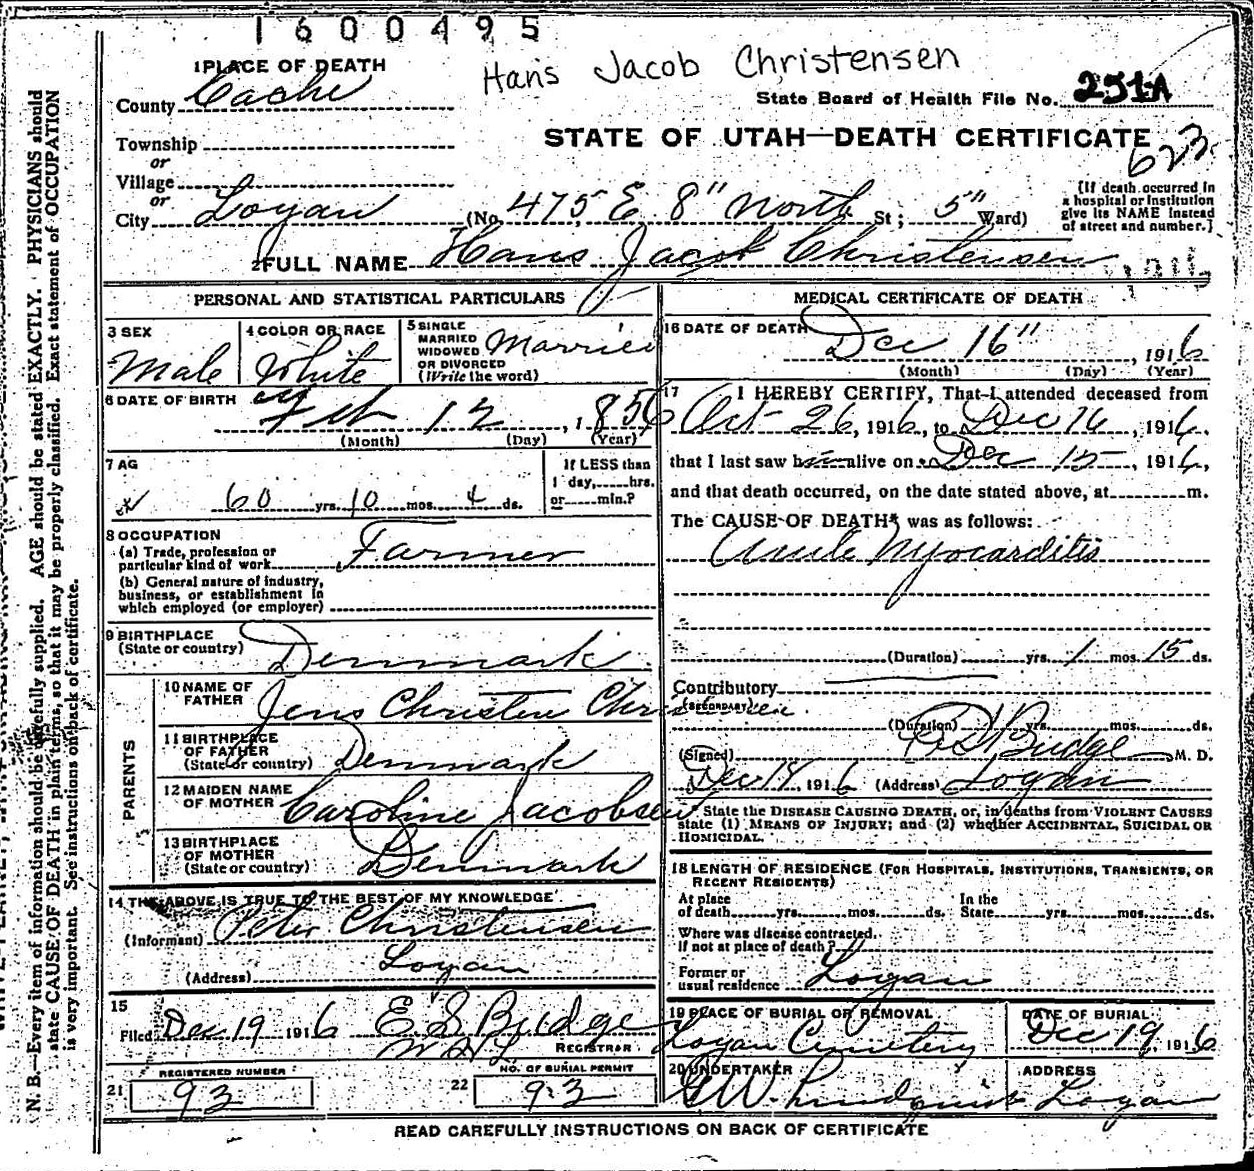 1600495
Hans Jacob Christensen
1 PLACE OF DEATH
County Cache
State Board of Health File No. 251A
Township
or
STATE OF UTAH—DEATH CERTIFICATE
623
Village
or
City Logan (No. 475 E 8" North St; 5" Ward)
[If death occurred in
a hospital or institution
give its NAME instead
of street and number.]
2 FULL NAME Hans Jacob Christensen
PERSONAL AND STATISTICAL PARTICULARS
3 SEX
Male
4 COLOR OR RACE
White
5 SINGLE
MARRIED
WIDOWED
OR DIVORCED
(Write the word)
Married
6 DATE OF BIRTH
Feb 12, 1856
(Month) (Day) (Year)
7 AG
60 yrs. 10 mos. 4 ds.
If LESS than
1 day,......hrs.
or......min.?
8 OCCUPATION
(a) Trade, profession or
particular kind of work Farmer
(b) General nature of industry,
business, or establishment in
which employed (or employer)
9 BIRTHPLACE
(State or country) Denmark
PARENTS
10 NAME OF
FATHER Jens Christen Christensen
11 BIRTHPLACE
OF FATHER
(State or country) Denmark
12 MAIDEN NAME
OF MOTHER Caroline Jacobsen
13 BIRTHPLACE
OF MOTHER
(State or country) Denmark
14 THE ABOVE IS TRUE TO THE BEST OF MY KNOWLEDGE
(Informant) Peter Christensen
(Address) Logan
15
Filed Dec 19 1916 E S Budge
REGISTRAR
REGISTERED NUMBER
21 93
NO. OF BURIAL PERMIT
22 93
MEDICAL CERTIFICATE OF DEATH
16 DATE OF DEATH
Dec 16", 1916
(Month) (Day) (Year)
17 I HEREBY CERTIFY, That I attended deceased from
Oct 26, 1916, to Dec 16, 1916,
that I last saw him alive on Dec 15, 1916,
and that death occurred, on the date stated above, at m.
The CAUSE OF DEATH* was as follows:
Acute Myocarditis
(Duration) yrs. 1 mos. 15 ds.
Contributory
(SECONDARY)
(Duration) yrs. mos. ds.
(Signed) Budge M. D.
Dec 19, 1916 (Address) Logan
* State the DISEASE CAUSING DEATH, or, in deaths from VIOLENT CAUSES
state (1) MEANS OF INJURY; and (2) whether ACCIDENTAL, SUICIDAL OR
HOMICIDAL.
18 LENGTH OF RESIDENCE (FOR HOSPITALS, INSTITUTIONS, TRANSIENTS, OR
RECENT RESIDENTS)
At place
of death yrs. mos. ds.
In the
State yrs. mos. ds.
Where was disease contracted.
if not at place of death?
Former or
usual residence Logan
19 PLACE OF BURIAL OR REMOVAL
Logan Cemetery
DATE OF BURIAL
Dec 19, 1916
20 UNDERTAKER
ADDRESS
Logan
READ CAREFULLY INSTRUCTIONS ON BACK OF CERTIFICATE
N. B.—Every item of information should be carefully supplied. AGE should be stated EXACTLY. PHYSICIANS should
state CAUSE OF DEATH in plain terms, so that it may be properly classified. Exact statement of OCCUPATION
is very important. See instructions on back of certificate.